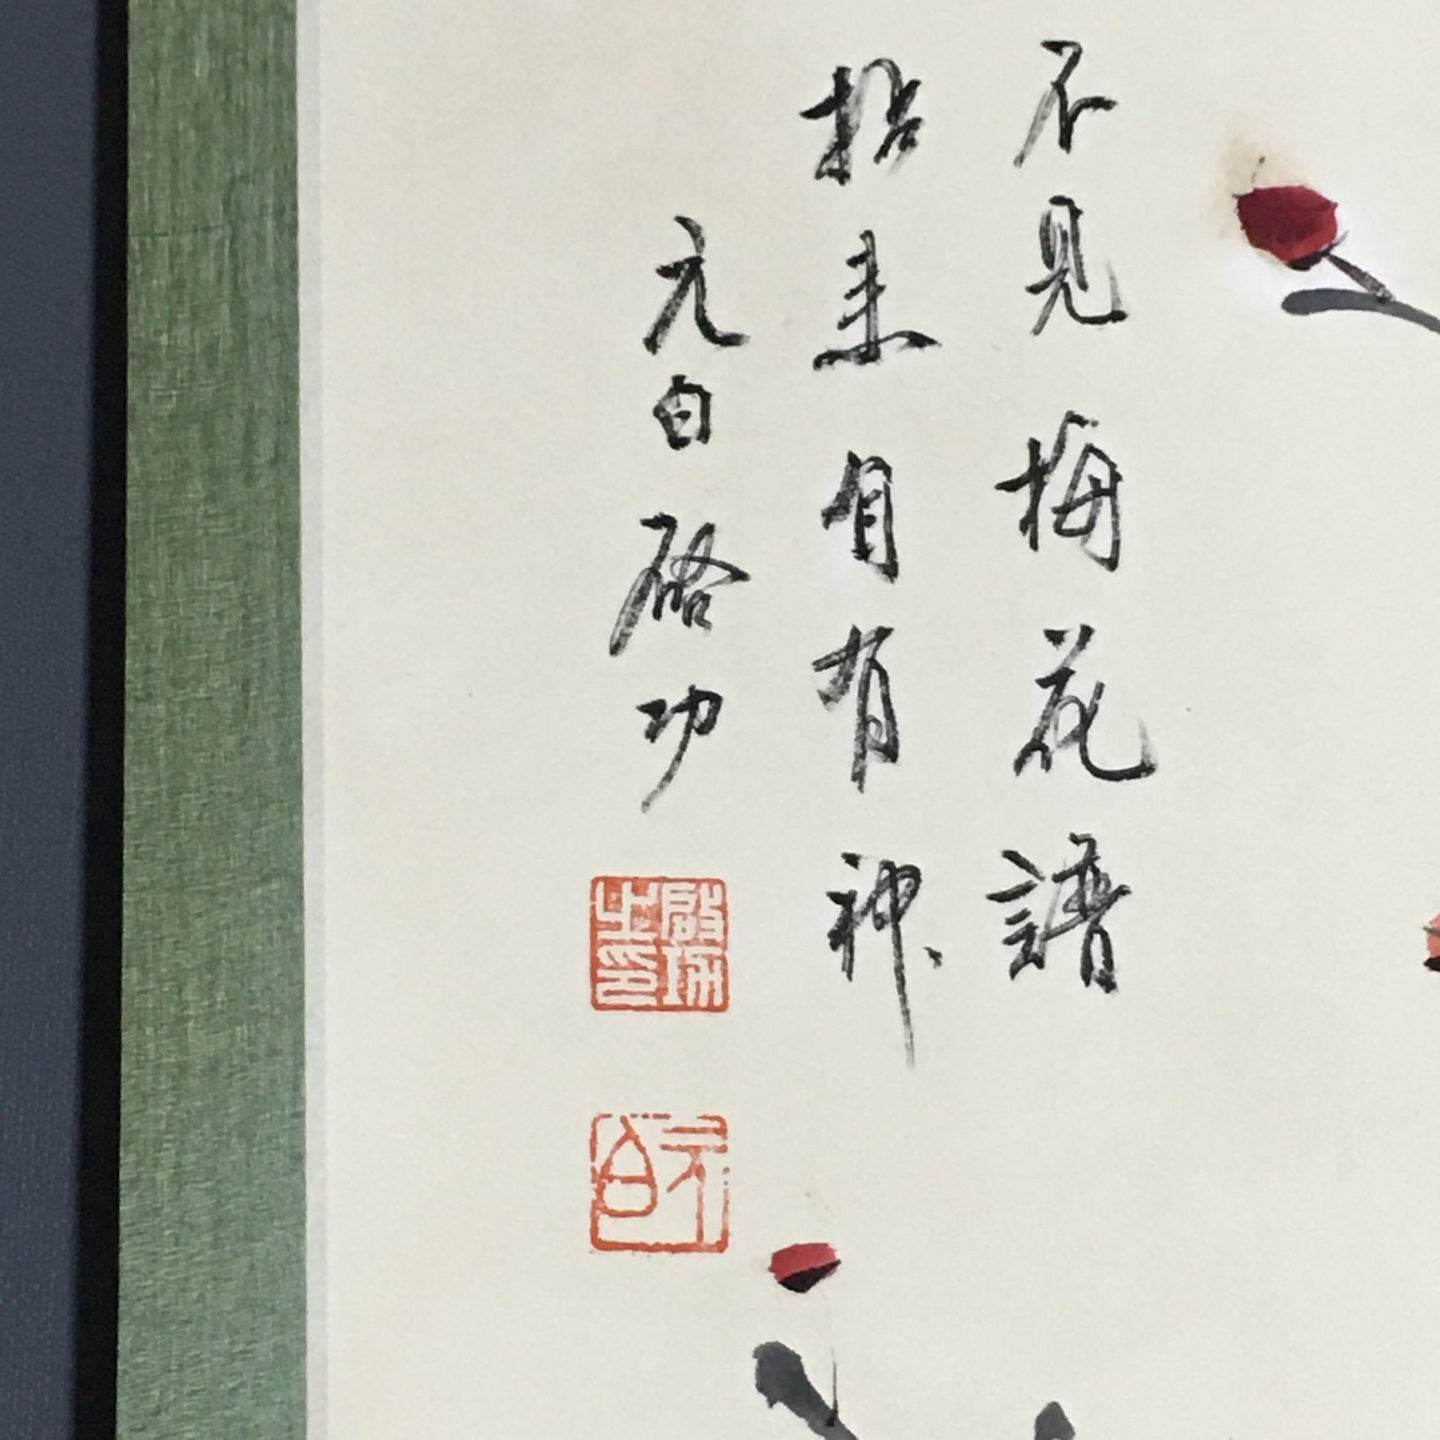 不見梅花譜
拈来自有神
元白啓功
啟功之印
元白